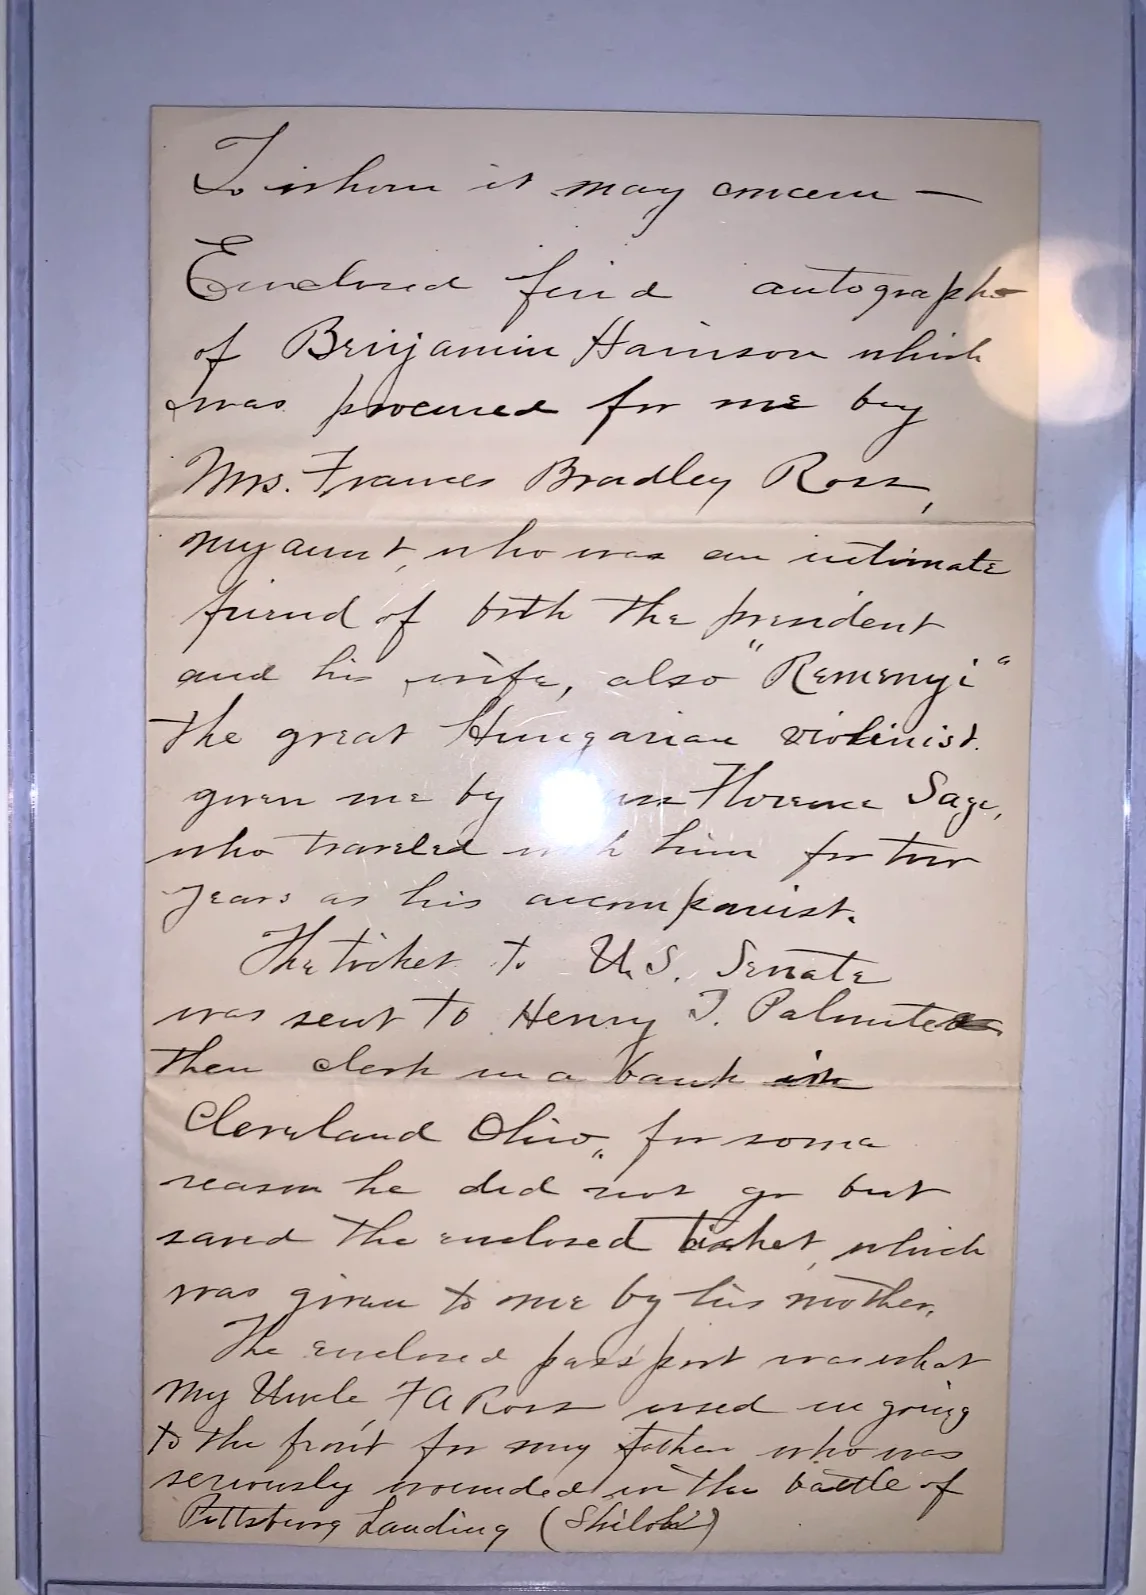 To whom it may concern —
Enclosed find autographs
of Benjamin Harrison which
was procured for me by
Mrs. Frances Bradley Ross,
my aunt, who was an intimate
friend of both the president
and his wife, also "Remenyi"
the great Hungarian violinist.
given me by Florence Sage,
who traveled with him for two
years as his accompanist.
The ticket to U.S. Senate
was sent to Henry
then clerk in a bank in
Cleveland Ohio, for some
reason he did not go but
saved the enclosed ticket, which
was given to me by his mother.
The enclosed passport was what
my Uncle F A Ross used in going
to the front for my father who was
seriously wounded in the battle of
Pittsburg Landing (Shiloh)